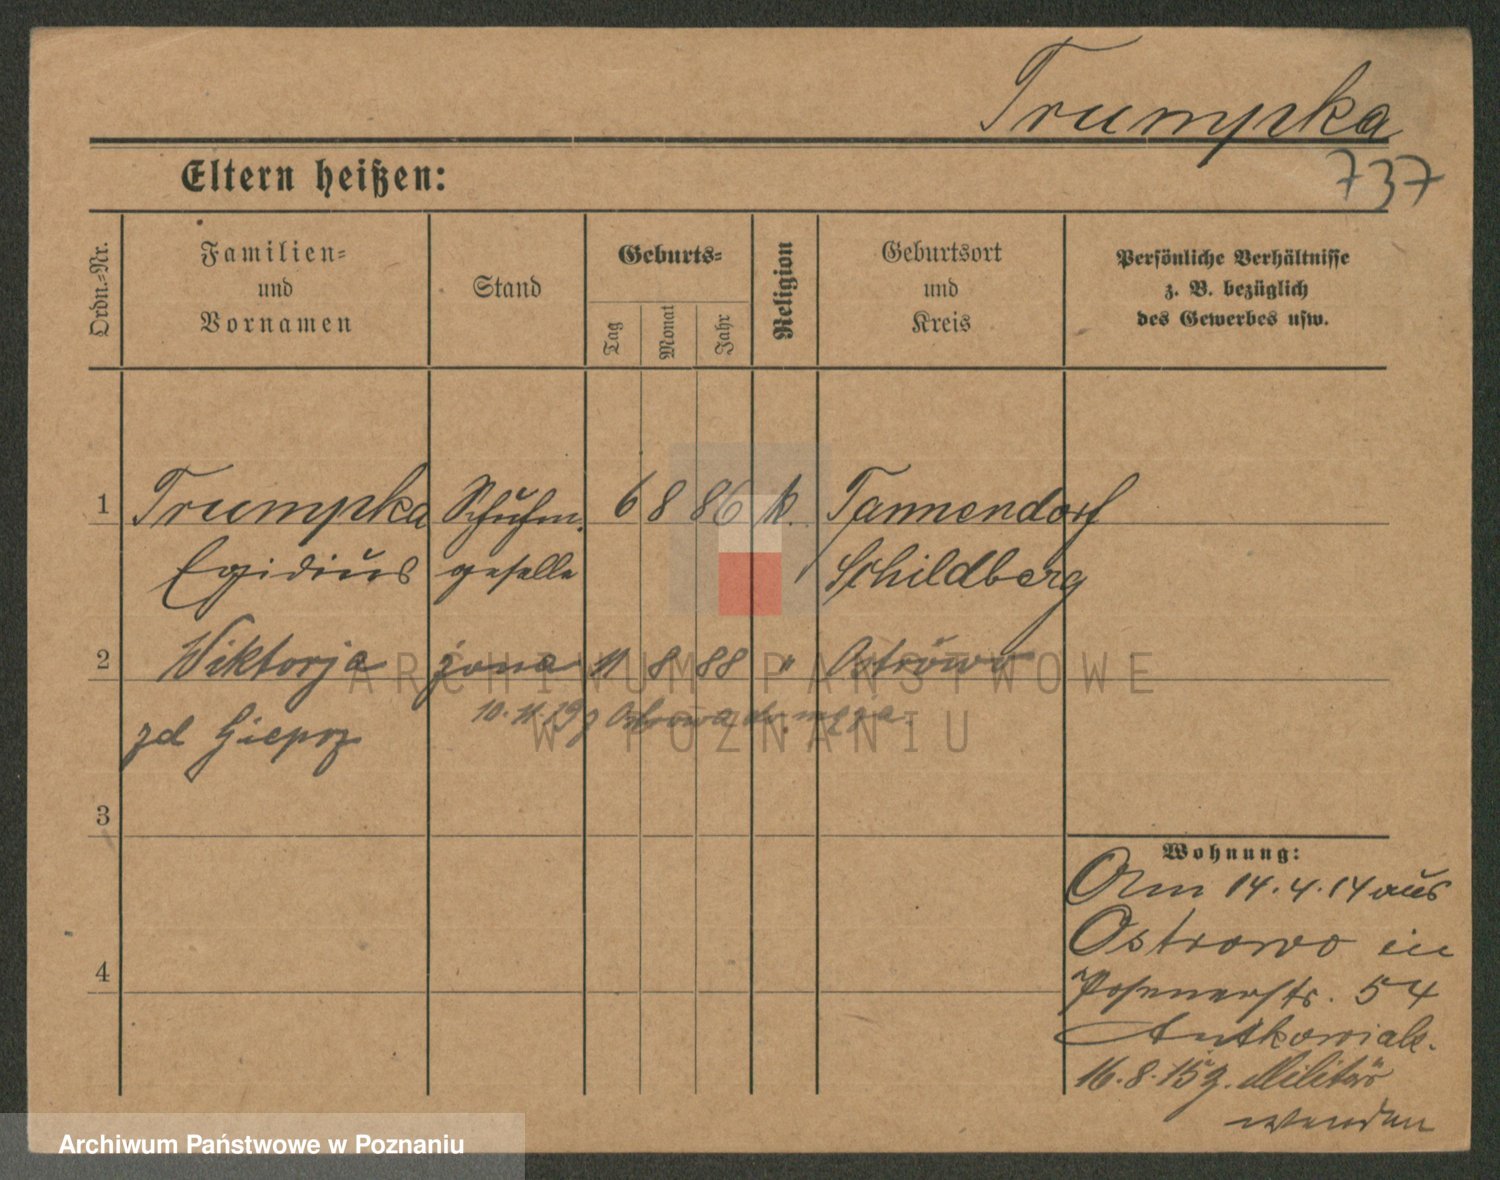 Trumpka
737
Eltern heißen:
Ordn.-Nr.
Familien-
und
Vornamen
Stand
Geburts-
Tag
Monat
Jahr
Religion
Geburtsort
und
Kreis
Persönliche Verhältnisse
z. B. bezüglich
des Gewerbes usw.
1 Trumpka Schuhm. 6 8 86 k. Tannendorf
Egidius geselle Schildberg
2 Wiktorja żona 11 8 88 " Ostrowo
10. 11. 19 z Ostrowa do męża.
zd
3
4
Wohnung:
Am 14.4.14 aus
Ostrowo in
Posenerstr. 54
Antkowiak.
16.8.15 z. Militär
wenden
ARCHIWUM PAŃSTWOWE
W POZNANIU
Archiwum Państwowe w Poznaniu